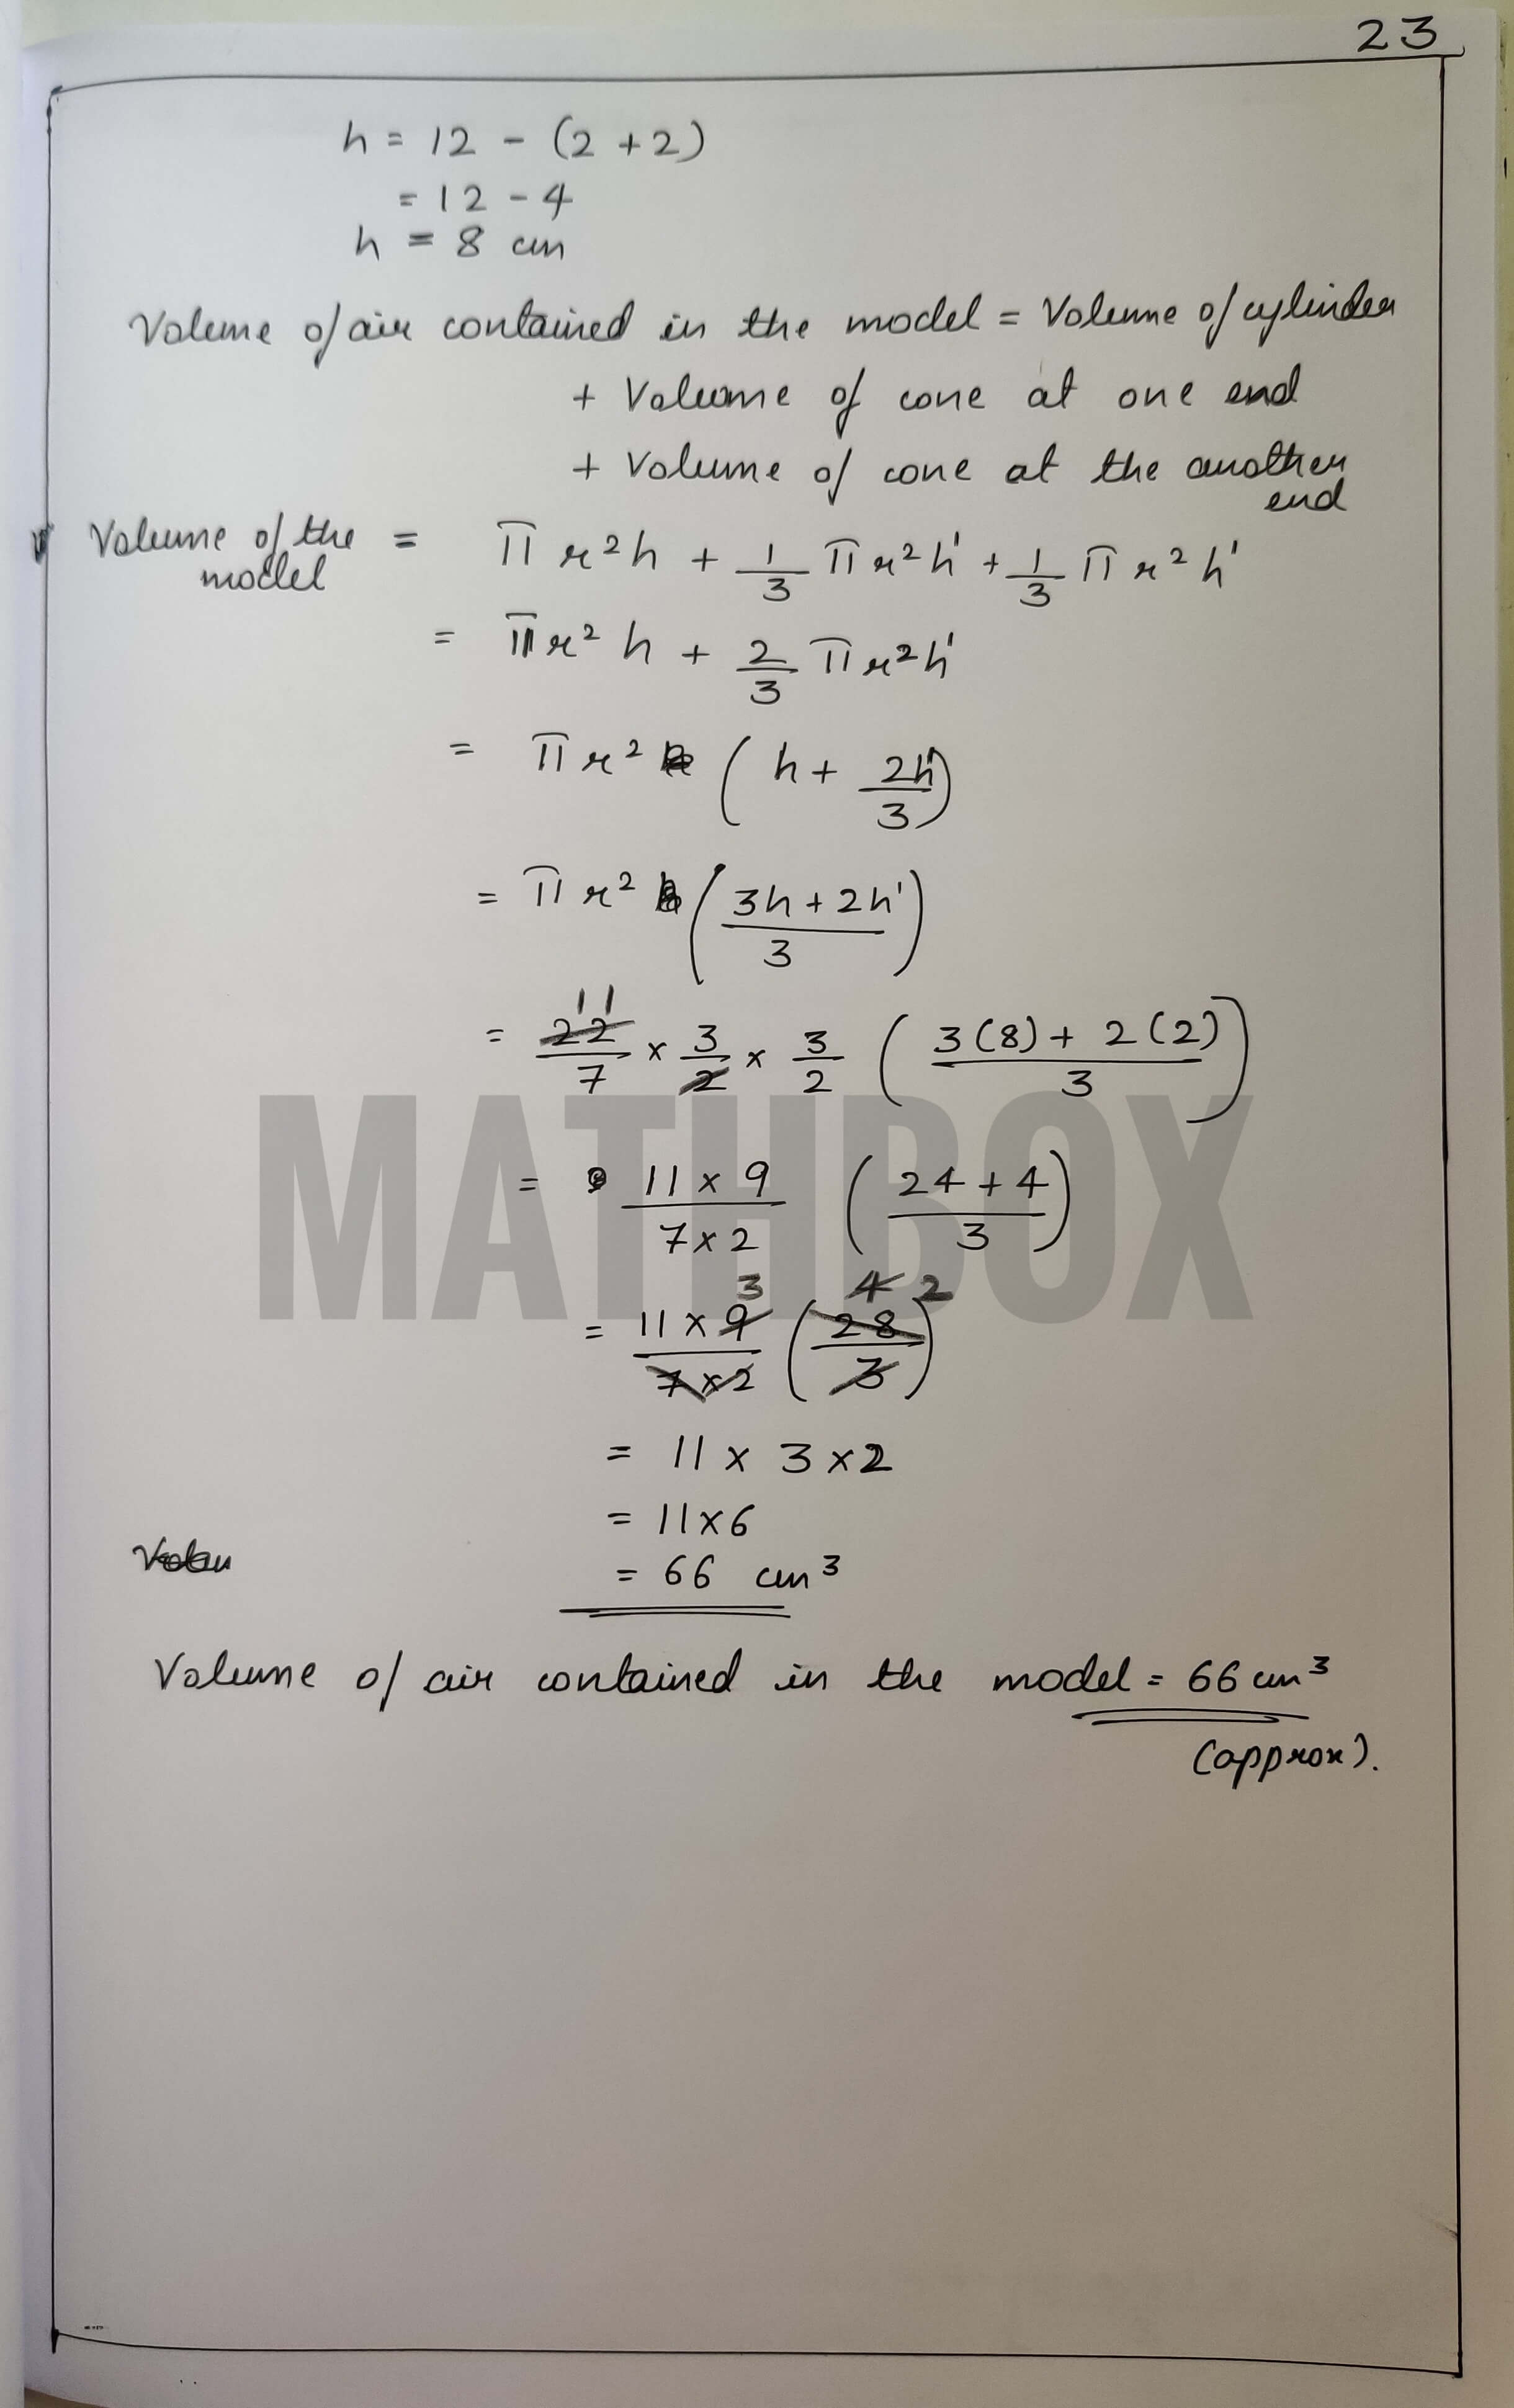 23
h = 12 - (2 + 2)
= 12 - 4
h = 8 cm
Volume of air contained in the model = Volume of cylinder
+ Volume of cone at one end
+ Volume of cone at the another
end
Volume of the model = πr²h + 1/3 πr²h' + 1/3 πr²h'
= πr²h + 2/3 πr²h'
= πr² (h + 2h'/3)
= πr² (3h + 2h'/3)
11
= 22/7 × 3/2 × 3/2 (3(8) + 2(2)/3)
= 11 × 9/7 × 2 (24 + 4/3)
3 4 2
= 11 × 9/7 × 2 (28/3)
= 11 × 3 × 2
= 11 × 6
= 66 cm³
Volume of air contained in the model = 66 cm³
(approx).
MATHBOX